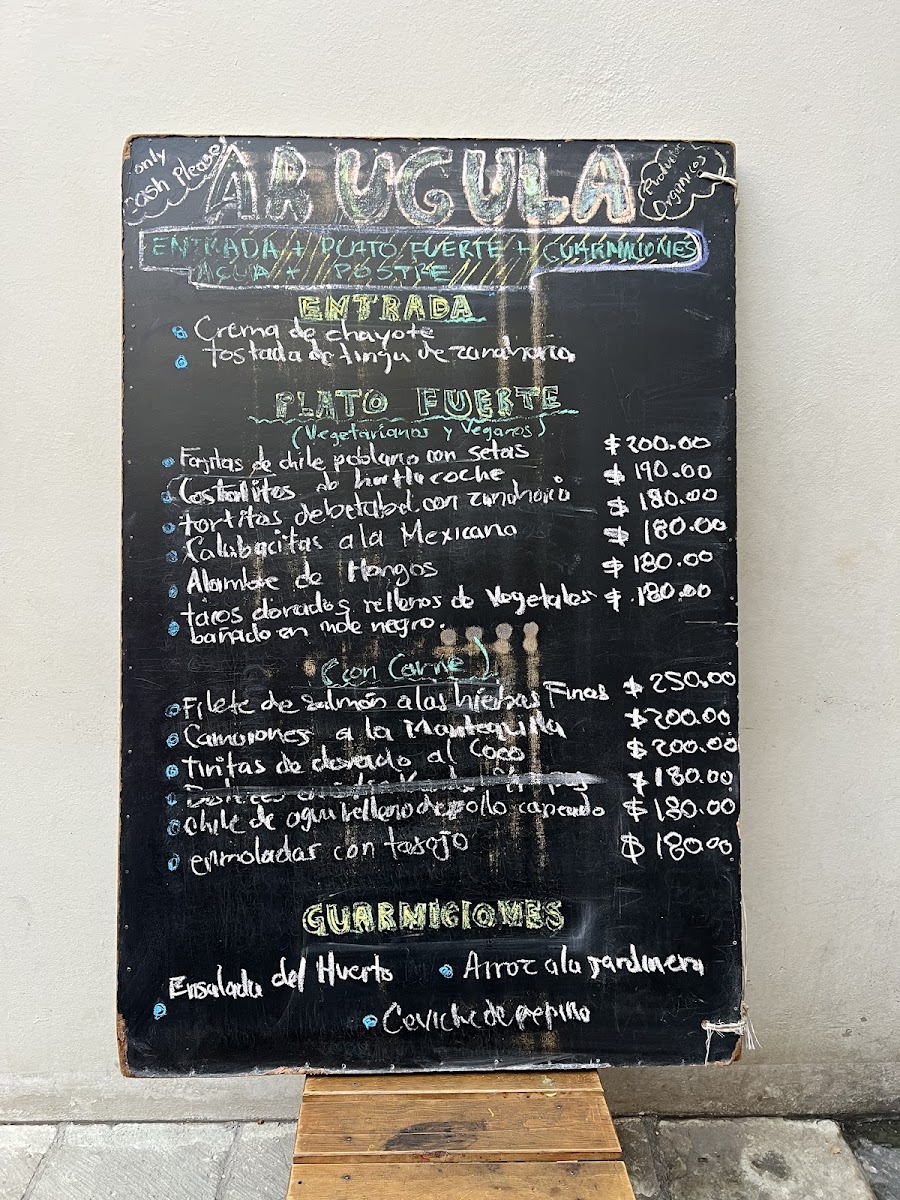 only
cash Please!
ARUGULA
Productos
Orgánicos
ENTRADA + PLATO FUERTE + GUARNICIONES
AGUA + POSTRE
ENTRADA
Crema de chayote
tostada de tinga de zanahoria
PLATO FUERTE
(Vegetarianos y Veganos)
Fajitas de chile poblano con setas $200.00
Costalitos de huitlacoche $190.00
tortitas de betabel con zanahoria $180.00
Calabacitas a la Mexicana $180.00
Alambre de Hongos $180.00
tacos dorados rellenos de Vegetales $180.00
bañado en mole negro.
(con Carne)
Filete de salmón a las hierbas Finas $250.00
Camarones a la Mantequilla $200.00
Tiritas de dorado al Coco $200.00
$180.00
chile de agua relleno de pollo capeado $180.00
enmoladas con tasajo $180.00
GUARNICIONES
Ensalada del Huerto
Arroz a la jardinera
Ceviche de pepino